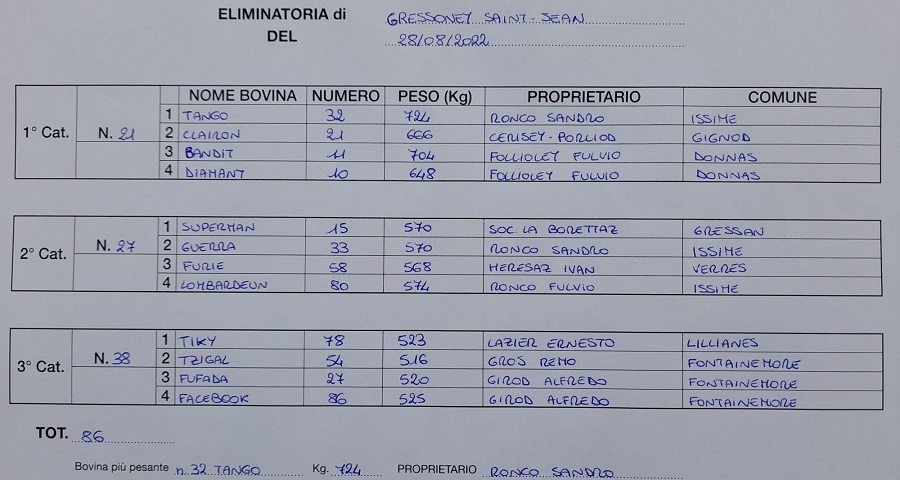 ELIMINATORIA di GRESSONEY SAINT-JEAN
DEL 28/08/2022
NOME BOVINA NUMERO PESO (Kg) PROPRIETARIO COMUNE
1° Cat. N. 21
1 TANGO 32 724 RONCO SANDRO ISSIME
2 CLAIRON 21 666 CERISEY-PORLIOD GIGNOD
3 BANDIT 11 704 FOLLIOLEY FULVIO DONNAS
4 DIAMANT 10 648 FOLLIOLEY FULVIO DONNAS
2° Cat. N. 27
1 SUPERMAN 15 570 SOC. LA BORETTAZ GRESSAN
2 GUERRA 33 570 RONCO SANDRO ISSIME
3 FURIE 58 568 HERESAZ IVAN VERRES
4 LOMBARDEUN 80 574 RONCO FULVIO ISSIME
3° Cat. N. 38
1 TIKY 78 523 LAZIER ERNESTO LILLIANES
2 TZIGAL 54 516 GROS REMO FONTAINEMORE
3 FUFADA 27 520 GIROD ALFREDO FONTAINEMORE
4 FACEBOOK 86 525 GIROD ALFREDO FONTAINEMORE
TOT. 86
Bovina più pesante n. 32 TANGO Kg. 724 PROPRIETARIO RONCO SANDRO